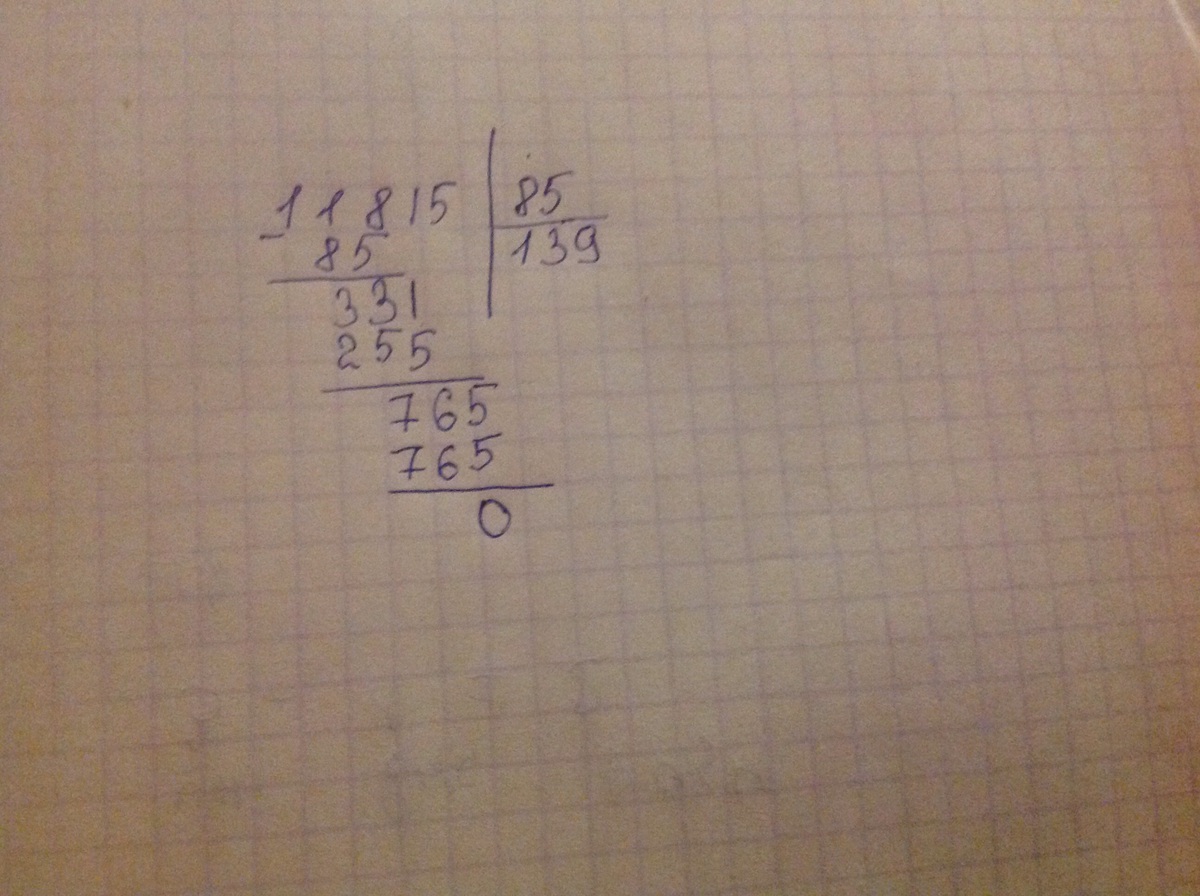 11815 85
- 85 139
331
255
765
765
0